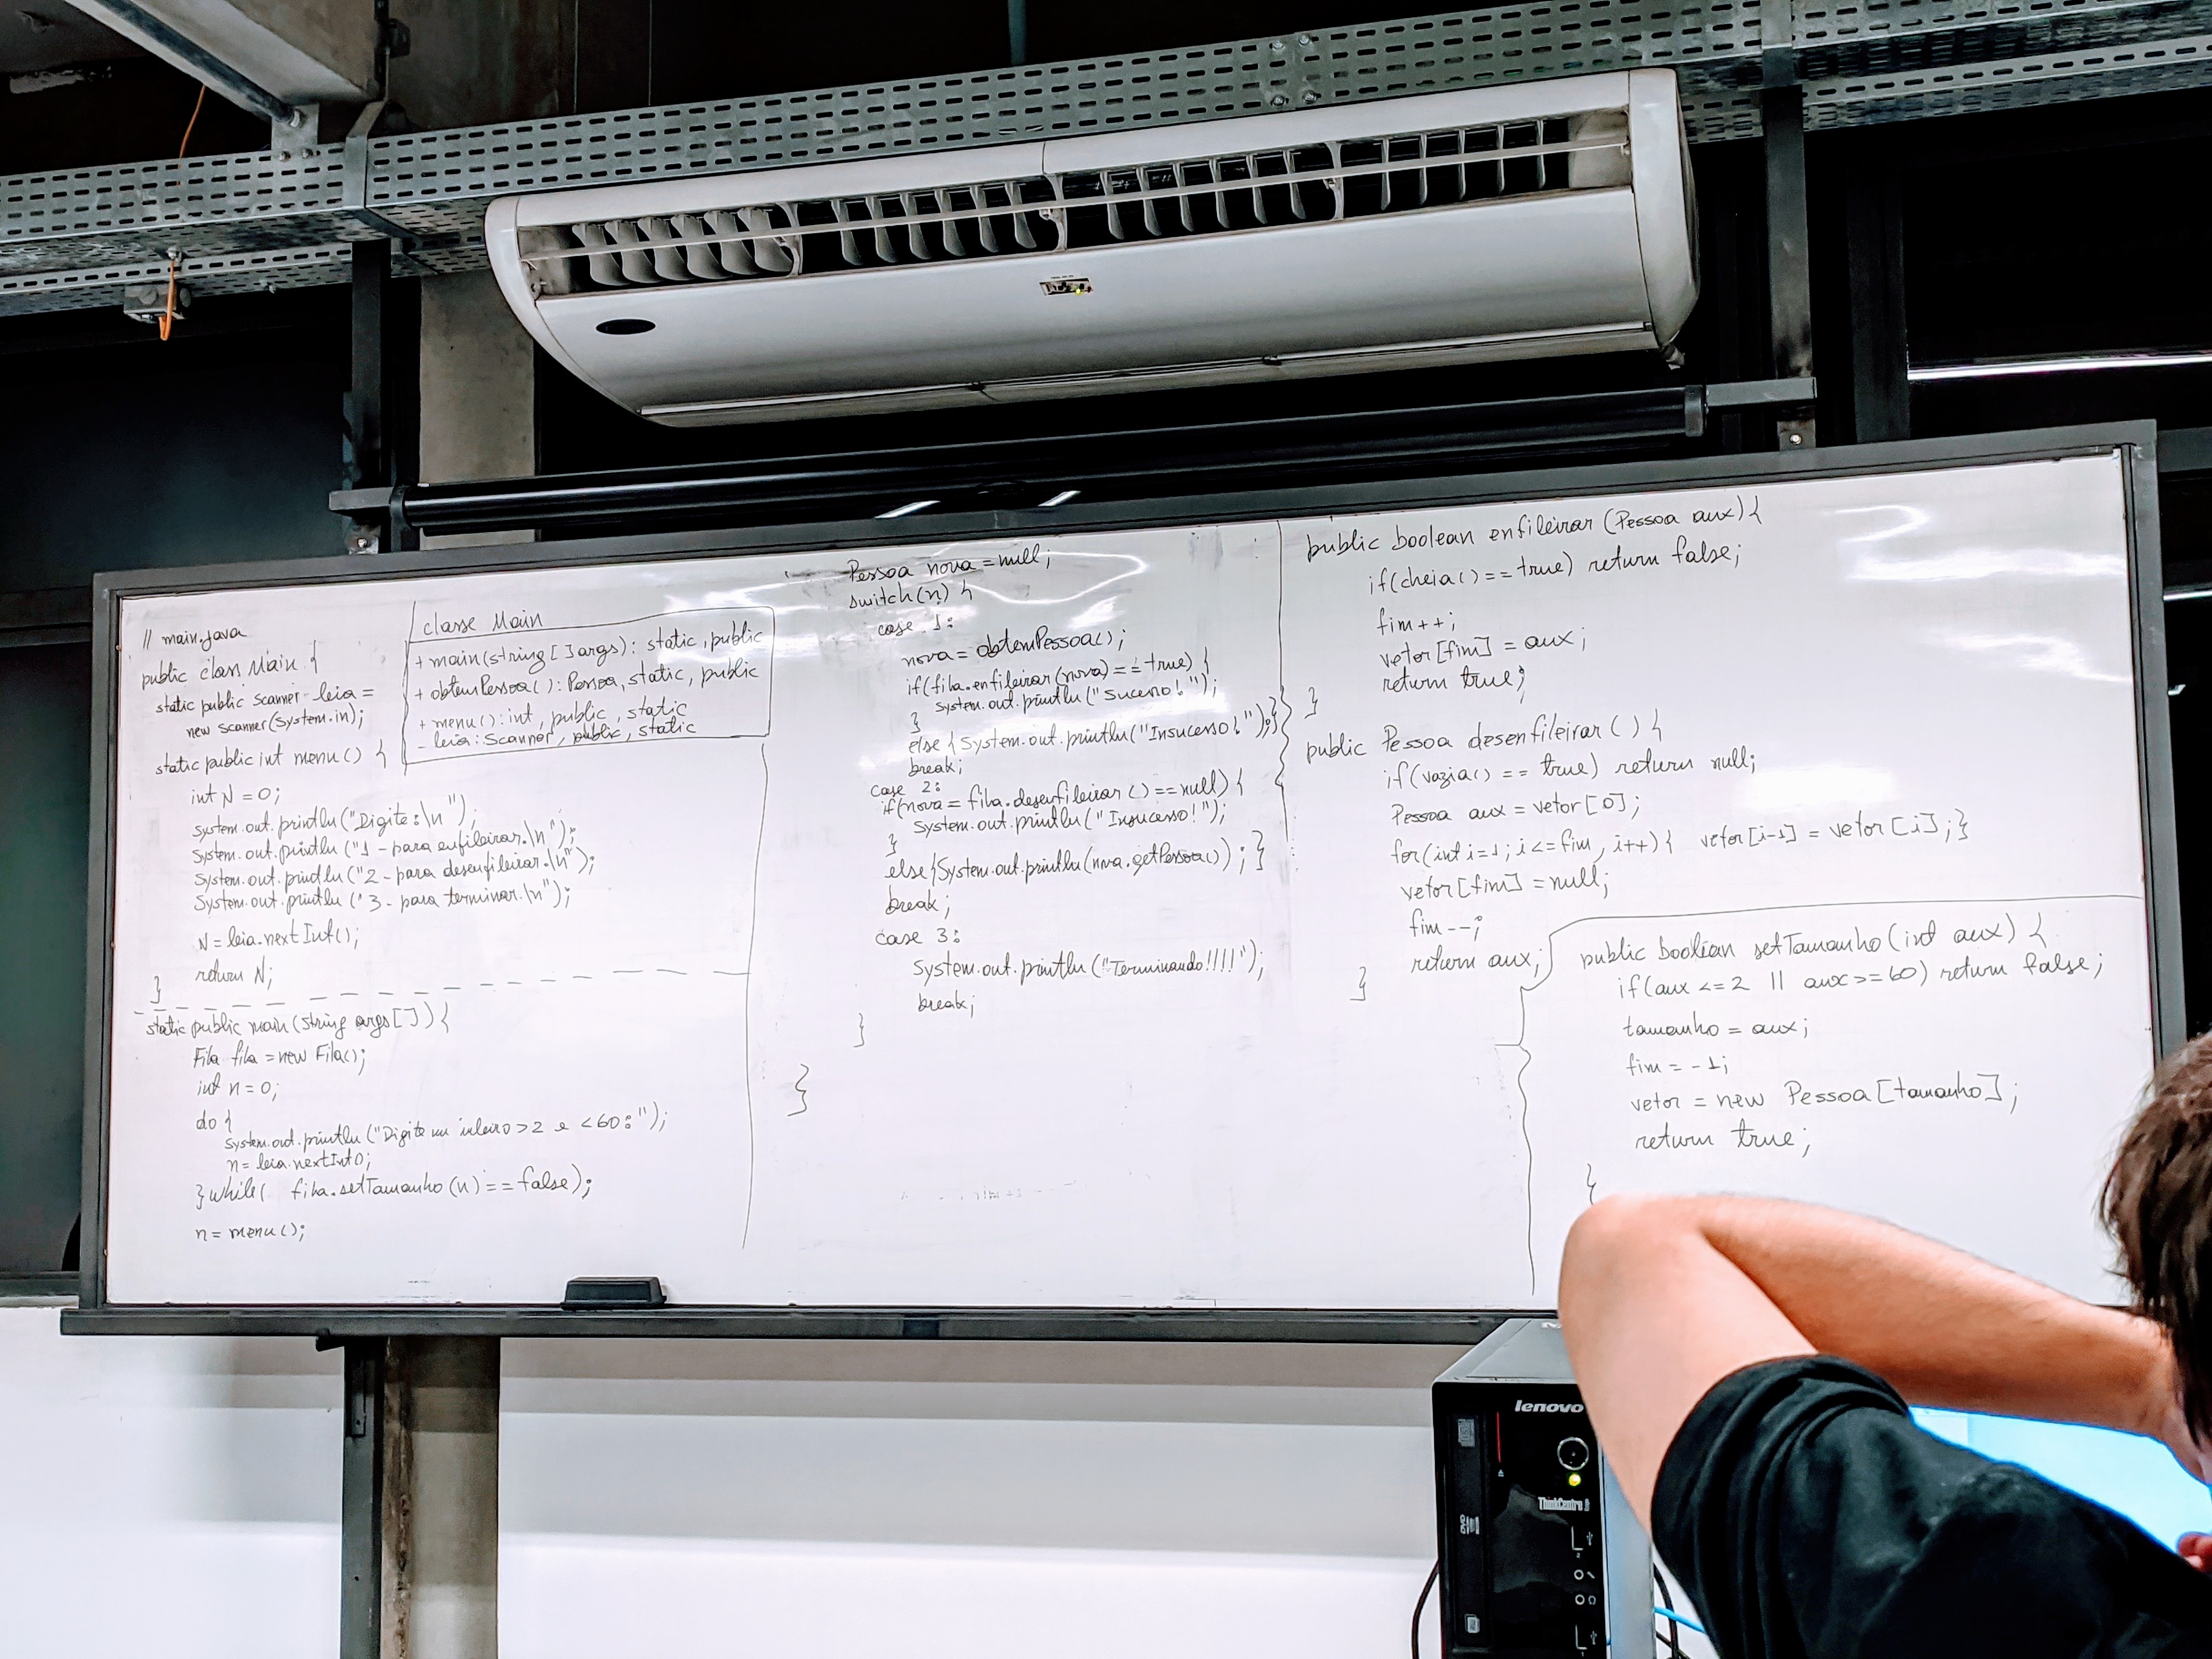 // main.java
public class Main {
static public Scanner leia =
new Scanner(System.in);
static public int menu() {
int N = 0;
System.out.println("Digite:\n");
System.out.println("1 - para enfileirar.\n");
System.out.println("2 - para desenfileirar.\n");
System.out.println("3 - para terminar.\n");
N = leia.nextInt();
return N;
}
classe Main
+ main(string[] args): static, public
+ obtemPessoa(): Pessoa, static, public
+ menu(): int, public, static
- leia: Scanner, public, static
static public main(string args[]) {
Fila fila = new Fila();
int n = 0;
do {
System.out.println("Digite um inteiro > 2 e < 60:");
n = leia.nextInt();
} while( fila.setTamanho(n) == false);
n = menu();
Pessoa nova = null;
switch(n) {
case 1:
nova = obtemPessoa();
if(fila.enfileirar(nova) == true) {
System.out.println("Sucesso!");
}
else {System.out.println("Insucesso!");}
break;
case 2:
if(nova = fila.desenfileirar() == null) {
System.out.println("Insucesso!");
}
else{System.out.println(nova.getPessoa()); }
break;
case 3:
System.out.println("Terminando!!!!");
break;
}
}
public boolean enfileirar (Pessoa aux) {
if(cheia() == true) return false;
fim++;
vetor[fim] = aux;
return true;
}
public Pessoa desenfileirar () {
if(vazia() == true) return null;
Pessoa aux = vetor[0];
for(int i=1; i<=fim, i++) { vetor[i-1] = vetor[i];}
vetor[fim] = null;
fim--;
return aux;
}
public boolean setTamanho(int aux) {
if(aux <= 2 || aux >= 60) return false;
tamanho = aux;
fim = -1;
vetor = new Pessoa[tamanho];
return true;
}
lenovo
ThinkCentre